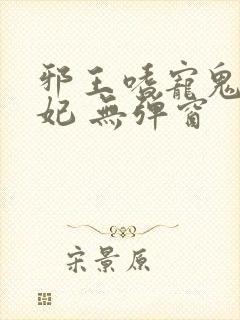 邪王嗜寵鬼
妃 無彈窗
宋景原